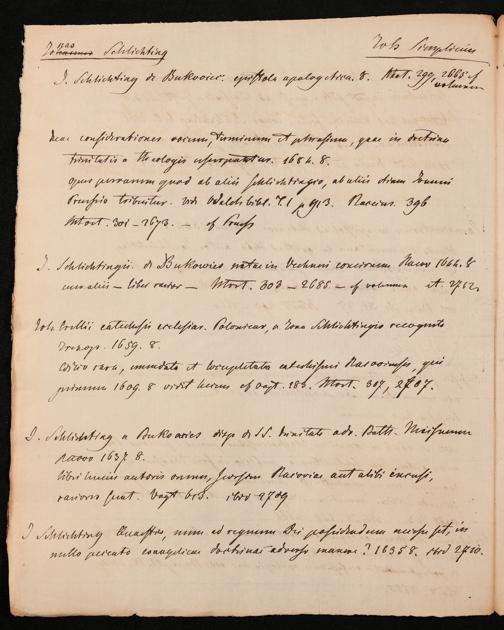 Jonas Schlichting Joh Simplicius
J. Schlichting de Bukowiec epistola apologetica. 8. Mort. 299, 2665 cf
volumen
Meae considerationes vocum, terminum et phrasium, quae in doctrina
trinitatis a theologis usurpantur. 1684. 8.
opus perrarum quod ab aliis Schlichtingio, ab aliis etiam Joanni
Preussio tribuitur. vid Walch bibl. T. 1 p 913. 396
Mort. 301 – 2673. – cf Preuss
J. Schlichtingii de Bukowiec notae in Vechneri concionem Racov 1644. 8
cum aliis – liber rarior – Mort. 303 – 2685 – cf volumen et 2752.
Joh Crellii catechesis ecclesiar. Polonicar, a Jona Schlichtingio recognita
Irenop. 1659. 8.
Editio rara, emendata et locupletata catechismi Racoviensis, qui
primum 1609. 8 vidit lucem cf Vogt. 186. Mort. 307, 2707.
J. Schlichting a Bukowiec de SS. trinitate adv. Balth. Meisnerum
Racov 1637 8.
libri huius autoris omnes, Racoviae aut alibi excusi,
rariores sunt. Vogt ibid 2709
J Schlichting Quaestio, num ad regnum Dei possidendum necesse sit, in
nullo peccato evangelicae doctrinae adverso manere? 1635 8. ibid 2710.